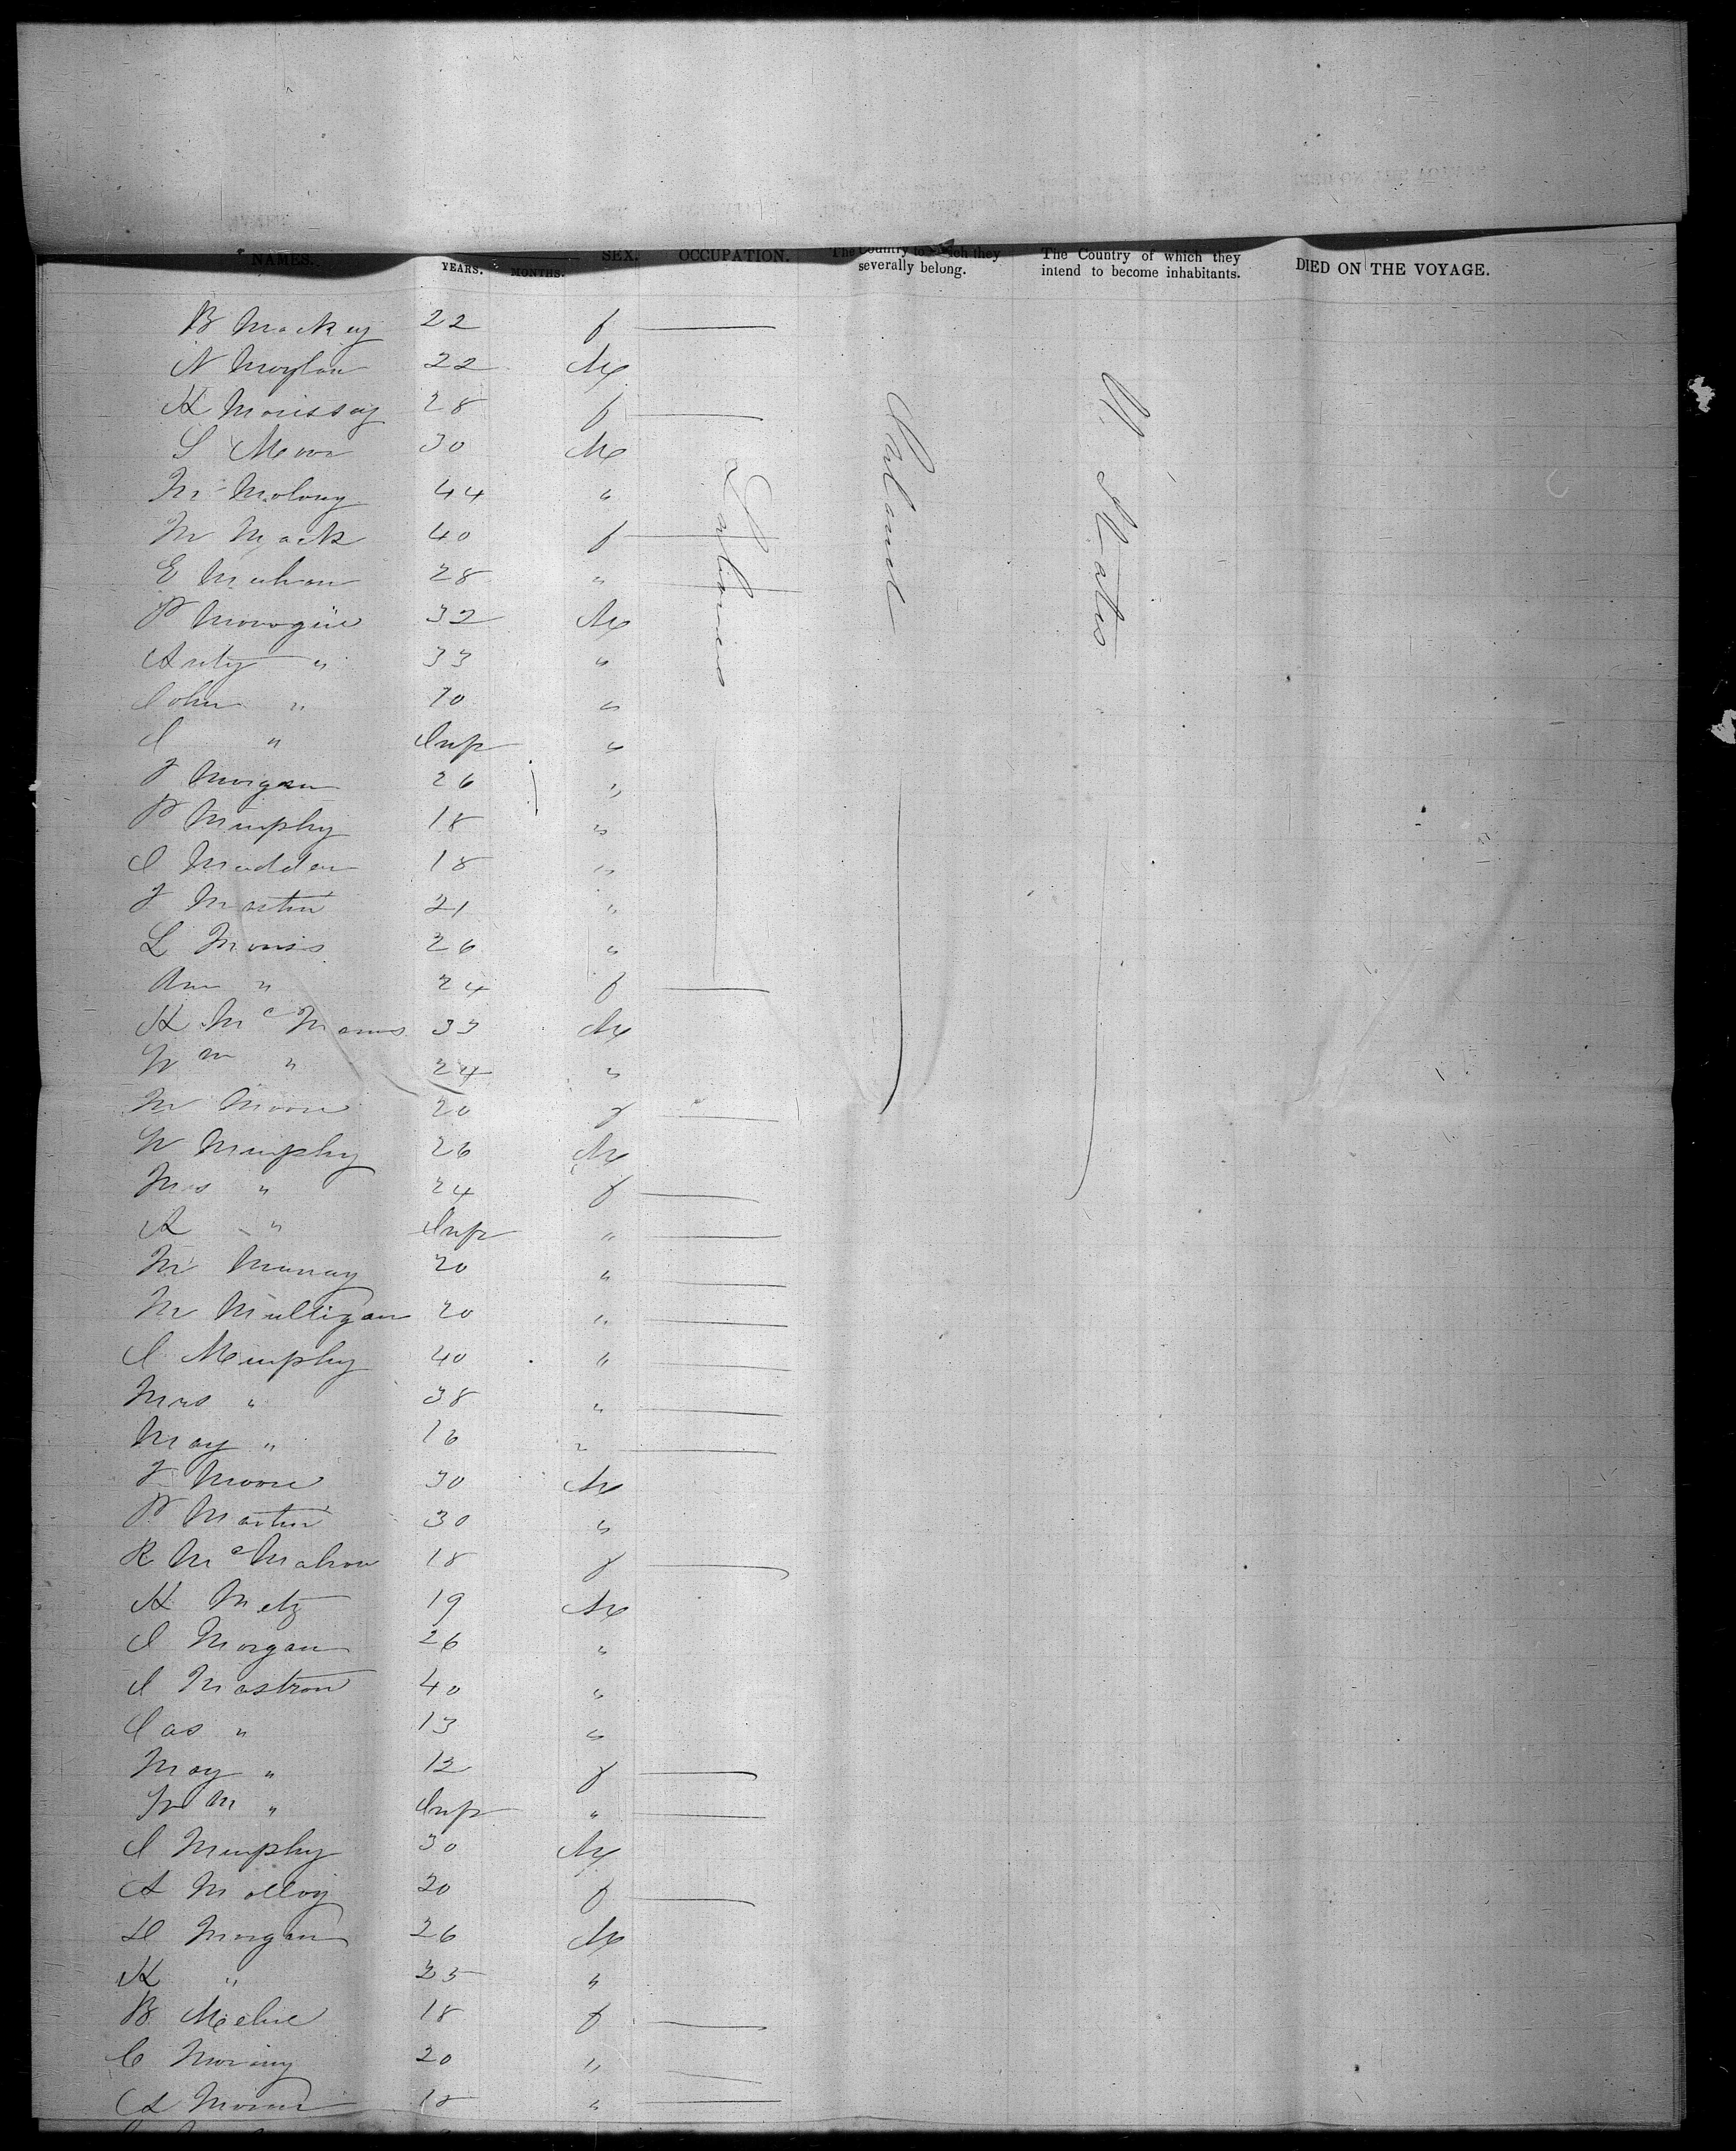 NAMES. YEARS. MONTHS. SEX. OCCUPATION. The Country to which they severally belong. The Country of which they intend to become inhabitants. DIED ON THE VOYAGE.
B Mackey 22 f
N Moylan 22 M Ireland U. States
K Morissey 28 f
S Moore 30 M
M Molony 44 "
M Mack 40 f
E Mahon 28 "
P 32 M
Anty " 33 "
John " 10 "
J " Inf "
J Morgan 26 "
P Murphy 18 "
J Madden 18 "
J Martin 21 "
L Morris 26 "
Ann " 24 f
H McManus 33 M
Wm " 24 "
M Moore 20 f
W Murphy 26 M
Mrs " 24 f
A " Inf "
M Murray 20 "
M Mulligan 20 "
J Murphy 40 "
Mrs " 38 "
May " 16 "
J Moore 30 M
P Martin 30 "
R McMahon 18 f
H Metz 19 M
J Morgan 26 "
J Mastron 40 "
Jas " 13 "
May " 12 f
Wm " Inf "
J Murphy 30 M
A Molloy 20 f
D Morgan 26 M
K " 25 "
B 18 f
C 20 "
A 18 "